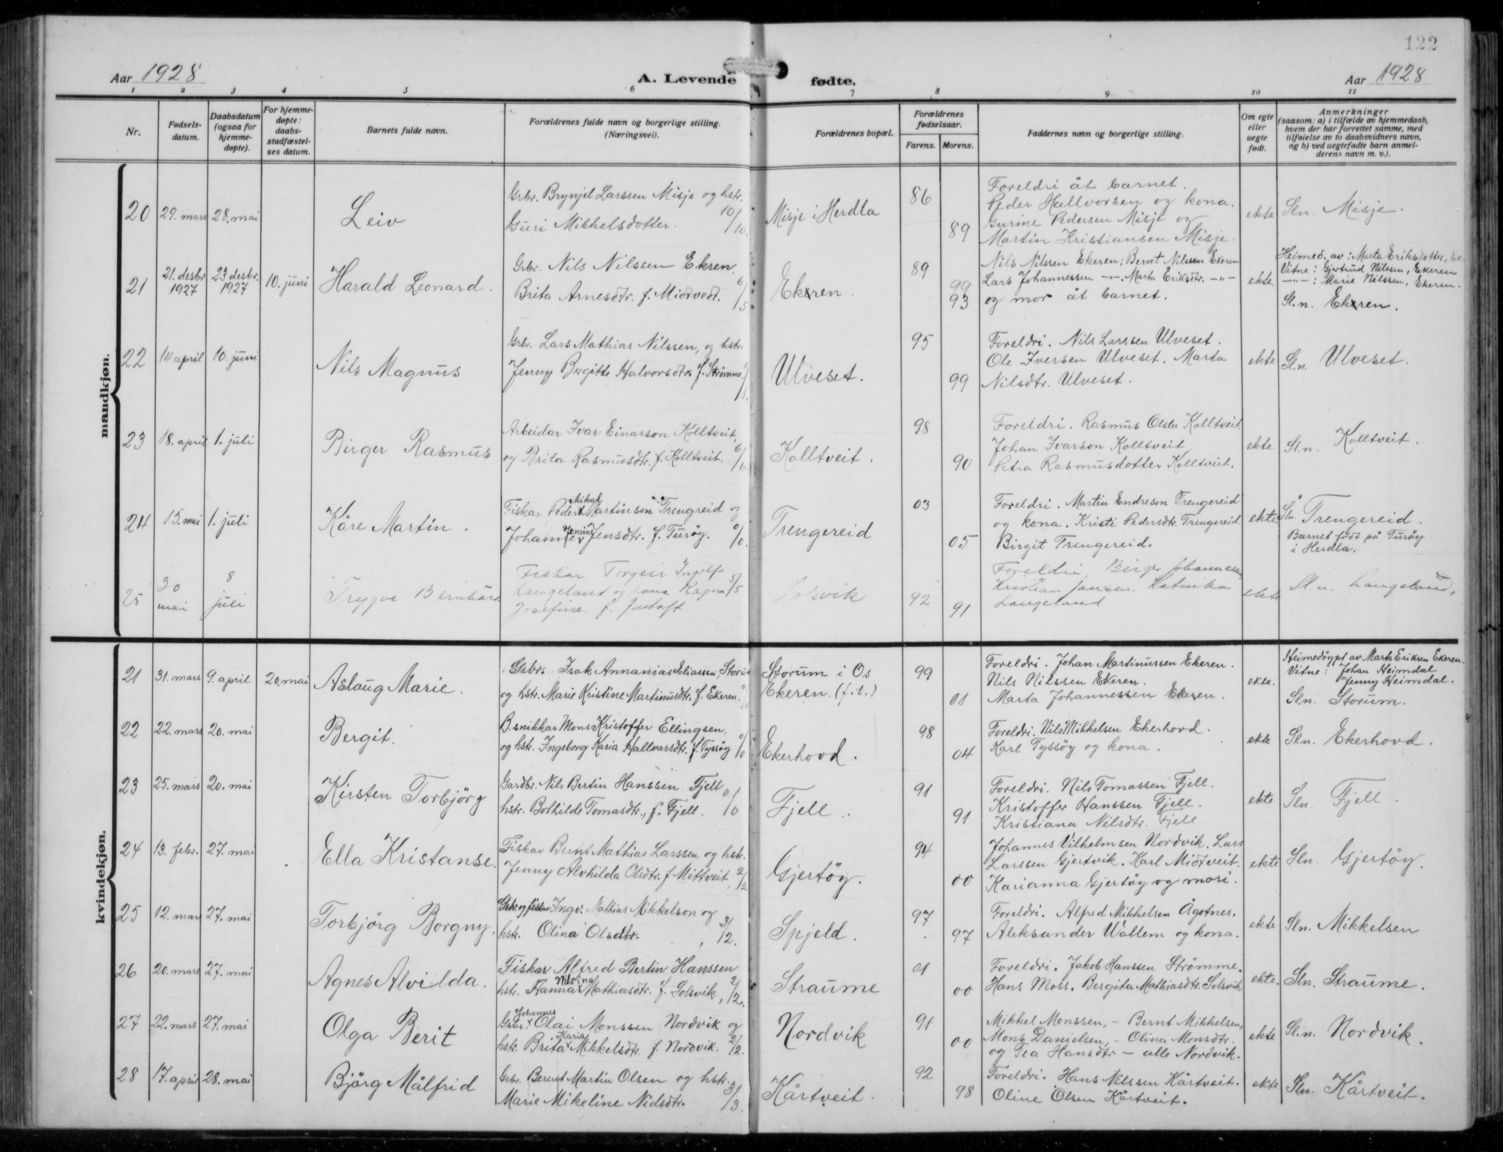 122
Aar 1928
A. Levende fødte.
Aar 1928
1 2 3 4 5 6 7 8 9 10 11
Nr.
Fødsels-
datum.
Daabsdatum
(ogsaa for
hjemme-
døpte).
For hjemme-
døpte:
daabs-
stadfæstel-
ses datum.
Barnets fulde navn.
Forældrenes fulde navn og borgerlige stilling.
(Næringsvei).
Forældrenes bopæl.
Forældrenes
fødselsaar.
Farens. Morens.
Faddernes navn og borgerlige stilling.
Om egte
eller
uegte
født.
Anmerkninger
(saasom: a) i tilfælde av hjemmedaab,
hvem der har forrettet samme, med
tilføielse av to daabsvidners navn,
og b) ved uegtefødte barn anmel-
derens navn m. v.).
mandkjøn.
20 29. mars 28. mai
Leiv
Grbr. Brynjel Larssen Misje og hstr.
Guri Mikkelsdotter. 10/10.
Misje i Herdla
86
89
Foreldri åt barnet.
Peder Hallvorsen og kona.
Gurine Pedersen Misje og
Martin Kristiansen Misje.
ekte
Sln. Misje.
21 21. desbr. 1927 23 desbr. 1927 10. juni
Harald Leonard.
Grbr. Nils Nilssen Ekren.
Brita Arnesdtr. f. Midtvedt. 6/5
Ekren.
89
99
93
Nils Nilssen Ekeren; Bernt Nilssen Ekeren
Lars Johannessen -"- Marta Eriksdtr. -"-
og mor åt barnet.
ekte
Heimed. av: Marta Eriksdotter,
Vitne: Gjertrud Nilsen, Ekeren
-"- : Marie Nilssen, Ekeren.
Sl.n. Ekren.
22 14 april 10. juni
Nils Magnus
Grbr. Lars Mathias Nilssen, og hstr.
Jenny Birgitte Halvorsdtr. f. Strømme
Ulveset.
95
99
Foreldri. Nils Larssen Ulveset.
Ole Iversen Ulveset. Marta
Nilsdtr. Ulveset.
ekte
Sl.n. Ulveset.
23 18. april 1. juli
Birger Rasmus
Arbeidar Ivar Einarson Kolltveit
og Brita Rasmusdtr. f. Kolltveit. 6/6
Kolltveit.
98
90
Foreldri. Rasmus Olsen Kolltveit
Johan Ivarson Kolltveit
Petra Rasmusdotter Kolltveit.
ekte
Sln. Kolltveit.
24 15. mai 1. juli
Kåre Martin.
Mikal
Fiskar Peder Martinson Trengreid og
Jensine
Johanne Jensdtr. f. Turøy. 0/0.
Trengereid
03
05
Foreldri. Martin Endreson Trengereid
og kona. Kristi Pedersdtr. Trengereid
Birgit Trengereid.
ekte
Sln. Trengereid.
Barnet født på Turøy
i Herdla.
25 30 mai 8 juli
Trygve Bernhard
Fiskar Torgeir Ingolf
Langeland og kona Ragna 5/5
Josefine, f.
Solsvik
92
91
Foreldri, Birger Johannesen
Kristian Jansen Katinka
Langeland
ekte
Sl.n. Langeland.
kvindekjøn.
21 31. mars 9. april 20. mai
Aslaug Marie.
Grbr. Isak Annanias Eliassen Storum
og hstr. Marie Kristine Martinusdtr. f. Ekeren.
Storum i Os
Ekeren. (f.t.)
99
01
Foreldri. Johan Martinussen Ekeren.
Nils Nilssen Ekeren.
Marta Johannessen Ekeren.
ekte.
Heimedøypt av Marta Eriksen Ekeren.
Vitne: Johan Heimdal
Jenny Heimdal.
Sln. Storum.
22 22. mars 20. mai
Bergit.
B.snikkar Mons Kristoffer Ellingsen,
og hstr. Ingeborg Karia Hallvarsdtr. f. Tyssøy 0/0
Ekerhovd.
98
04
Foreldri. Nils Mikkelsen Ekerhovd.
Karl Tyssøy og kona.
ekte
Sln. Ekerhovd.
23 25. mars 20. mai
Kirsten Torbjörg
Gardbr. Nils Bertin Hanssen. Fjell
hstr. Bothilde Tomasdtr., f. Fjell. 0/0
Fjell.
91
91
Foreldri. Nils Tomassen Fjell.
Kristoffer Hanssen Fjell.
Kristiana Nilsdtr. Fjell
ekte
Sln. Fjell.
24 13. febr. 27. mai
Ella Kristanse.
Fiskar Bernt Mathias Larssen og hstr.
Jenny Alvhilda Olsdtr. f Mittveit, 2/2
Gjertöy.
94
00
Johannes Vilhelmsen Nordvik, Lars
Larssen Gjertvik. Karl Midtveit.
Karianna Gjertöy og mori.
ekte
Sln. Gjertöy.
25 12. mars 27. mai
Torbjörg Borgny.
Grbr. og fiskar Inge: Mathias Mikkelson og
hstr. Olina Olsdtr. 3/12.
Spjeld.
97
97
Foreldri. Alfred Mikkelsen Ågotnes.
Aleksander Wallem og kona.
ekte
Sln. Mikkelsen
26 20. mars 27. mai
Agnes Alvilda.
Fiskar Alfred Bertin Hanssen
hstr. Hanna Mathiasdtr. f. Solsvik, 2/2.
Straume
01
00
Foreldri. Jakob Hanssen Strømme.
Hans Mots. Bergita Mathiasdtr. Solsvik
ekte.
Sln. Straume.
27 22. mars 27. mai
Olga Berit
Johannes
Grbr. Olai Monssen Nordvik og
Karia
hstr. Brita Mikkelsdtr. f Nordvik. 2/2.
Nordvik
91
00
Mikkel Monssen, - Bernt Mikkelsen,
Mons Danielsen, - Olina Monsdtr.
og Gea Hansdtr - alle Nordvik.
ekte
Sl.n. Nordvik.
28 17. april 28. mai
Björg Målfrid
Grbr. Bernt Martin Olsen og hstr.
Marie Mikeline Nielsdtr. 3/3.
Kårtveit.
92
98
Foreldri. Hans Nilssen Kårtveit.
Oline Olsen Kårtveit.
ekte
Sln. Kårtveit.